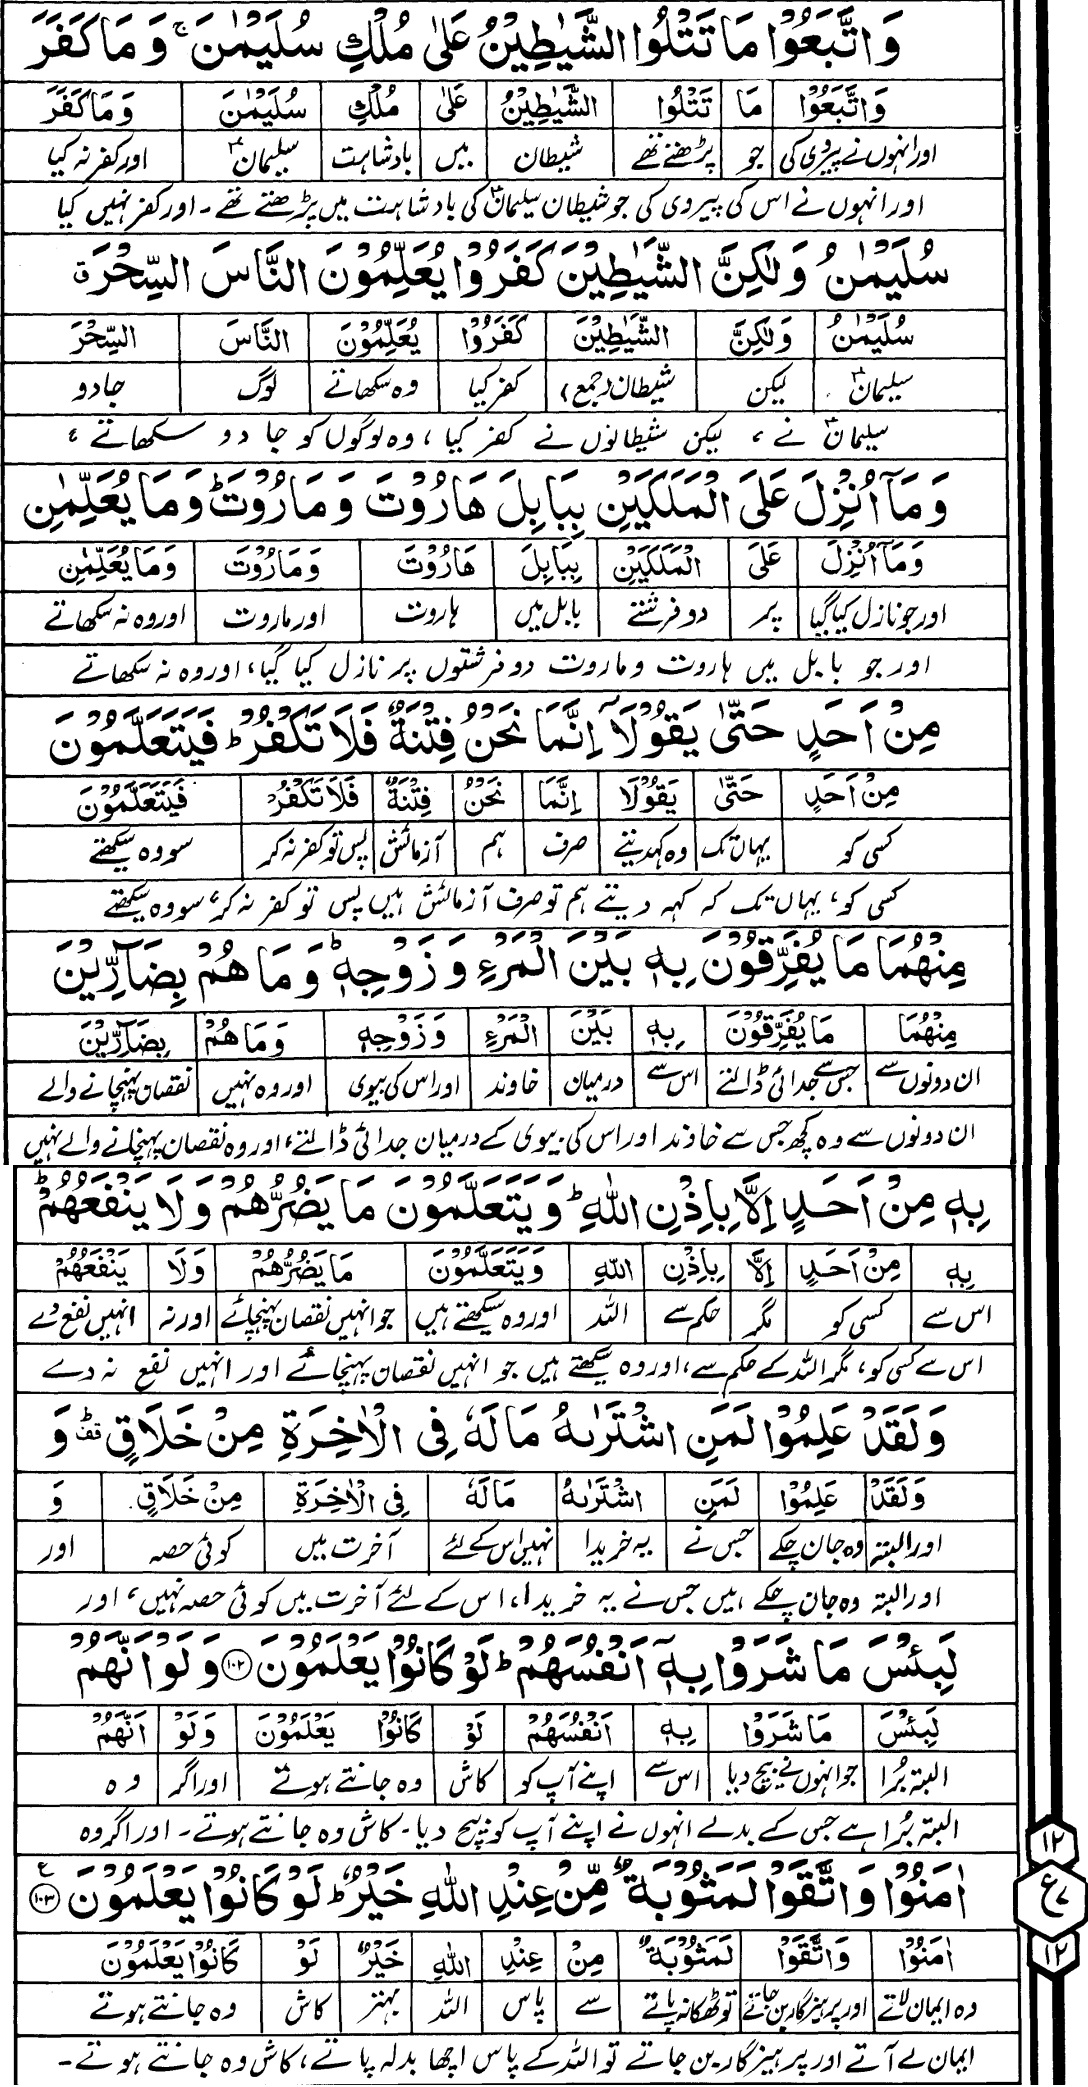 وَاتَّبَعُوْا مَا تَتْلُوا الشَّيٰطِيْنُ عَلٰى مُلْكِ سُلَيْمٰنَ ۚ وَمَا كَفَرَ
وَاتَّبَعُوْا مَا تَتْلُوا الشَّيٰطِيْنُ عَلٰى مُلْكِ سُلَيْمٰنَ وَمَا كَفَرَ
اور انہوں نے پیروی کی جو پڑھتے تھے شیطان میں بادشاہت سلیمانؑ اور کفر نہ کیا
اور انہوں نے اس کی پیروی کی جو شیطان سلیمانؑ کی بادشاہت میں پڑھتے تھے۔ اور کفر نہیں کیا
سُلَيْمٰنُ وَلٰكِنَّ الشَّيٰطِيْنَ كَفَرُوْا يُعَلِّمُوْنَ النَّاسَ السِّحْرَ ۃ
سُلَيْمٰنُ وَلٰكِنَّ الشَّيٰطِيْنَ كَفَرُوْا يُعَلِّمُوْنَ النَّاسَ السِّحْرَ
سلیمانؑ لیکن شیطان (جمع) کفر کیا وہ سکھاتے لوگ جادو
سلیمانؑ نے، لیکن شیطانوں نے کفر کیا، وہ لوگوں کو جادو سکھاتے،
وَمَآ اُنْزِلَ عَلَى الْمَلَكَيْنِ بِبَابِلَ هَارُوْتَ وَمَارُوْتَ ؕ وَمَا يُعَلِّمٰنِ
وَمَآ اُنْزِلَ عَلَى الْمَلَكَيْنِ بِبَابِلَ هَارُوْتَ وَمَارُوْتَ وَمَا يُعَلِّمٰنِ
اور جو نازل کیا گیا پر دو فرشتے بابل میں ہاروت اور ماروت اور وہ نہ سکھاتے
اور جو بابل میں ہاروت و ماروت دو فرشتوں پر نازل کیا گیا، اور وہ نہ سکھاتے
مِنْ اَحَدٍ حَتّٰى يَقُوْلَآ اِنَّمَا نَحْنُ فِتْنَةٌ فَلَا تَكْفُرْ ؕ فَيَتَعَلَّمُوْنَ
مِنْ اَحَدٍ حَتّٰى يَقُوْلَا اِنَّمَا نَحْنُ فِتْنَةٌ فَلَا تَكْفُرْ فَيَتَعَلَّمُوْنَ
کسی کو یہاں تک وہ کہہ دیتے صرف ہم آزمائش پس تو کفر نہ کر سو وہ سیکھتے
کسی کو، یہاں تک کہ کہہ دیتے ہم تو صرف آزمائش ہیں پس تو کفر نہ کر، سو وہ سیکھتے
مِنْهُمَا مَا يُفَرِّقُوْنَ بِهٖ بَيْنَ الْمَرْءِ وَزَوْجِهٖ ؕ وَمَا هُمْ بِضَآرِّيْنَ
مِنْهُمَا مَا يُفَرِّقُوْنَ بِهٖ بَيْنَ الْمَرْءِ وَزَوْجِهٖ وَمَا هُمْ بِضَآرِّيْنَ
ان دونوں سے جس سے جدائی ڈالتے اس سے درمیان خاوند اور اس کی بیوی اور وہ نہیں نقصان پہنچانے والے
ان دونوں سے وہ کچھ جس سے خاوند اور اس کی بیوی کے درمیان جدائی ڈالتے، اور وہ نقصان پہنچانے والے نہیں
بِهٖ مِنْ اَحَدٍ اِلَّا بِاِذْنِ اللّٰهِ ؕ وَيَتَعَلَّمُوْنَ مَا يَضُرُّهُمْ وَلَا يَنْفَعُهُمْ ؕ
بِهٖ مِنْ اَحَدٍ اِلَّا بِاِذْنِ اللّٰهِ وَيَتَعَلَّمُوْنَ مَا يَضُرُّهُمْ وَلَا يَنْفَعُهُمْ
اس سے کسی کو مگر حکم سے اللہ اور وہ سیکھتے ہیں جو انہیں نقصان پہنچائے اور نہ انہیں نفع دے
اس سے کسی کو، مگر اللہ کے حکم سے، اور وہ سیکھتے ہیں جو انہیں نقصان پہنچائے اور انہیں نفع نہ دے
وَلَقَدْ عَلِمُوْا لَمَنِ اشْتَرٰىهُ مَا لَهٗ فِى الْاٰخِرَةِ مِنْ خَلَاقٍ ؕ قف وَ
وَلَقَدْ عَلِمُوْا لَمَنِ اشْتَرٰىهُ مَا لَهٗ فِى الْاٰخِرَةِ مِنْ خَلَاقٍ وَ
اور البتہ وہ جان چکے جس نے یہ خریدا نہیں اس کے لئے آخرت میں کوئی حصہ اور
اور البتہ وہ جان چکے ہیں جس نے یہ خریدا، اس کے لئے آخرت میں کوئی حصہ نہیں، اور
لَبِئْسَ مَا شَرَوْا بِهٖٓ اَنْفُسَهُمْ ؕ لَوْ كَانُوْا يَعْلَمُوْنَ ۱۰۲ وَلَوْ اَنَّهُمْ
لَبِئْسَ مَا شَرَوْا بِهٖ اَنْفُسَهُمْ لَوْ كَانُوْا يَعْلَمُوْنَ وَلَوْ اَنَّهُمْ
البتہ بُرا جو انہوں نے بیچ دیا اس سے اپنے آپ کو کاش وہ جانتے ہوتے اور اگر وہ
البتہ بُرا ہے جس کے بدلے انہوں نے اپنے آپ کو بیچ دیا۔ کاش وہ جانتے ہوتے۔ اور اگر وہ
۱۲
اٰمَنُوْا وَاتَّقَوْا لَمَثُوْبَةٌ مِّنْ عِنْدِ اللّٰهِ خَيْرٌ ؕ لَوْ كَانُوْا يَعْلَمُوْنَ ۱۰۳ ع
ع ۷
اٰمَنُوْا وَاتَّقَوْا لَمَثُوْبَةٌ مِنْ عِنْدِ اللّٰهِ خَيْرٌ لَوْ كَانُوْا يَعْلَمُوْنَ
۱۲
وہ ایمان لاتے اور پرہیزگار بن جاتے تو ٹھکانہ پاتے سے پاس اللہ بہتر کاش وہ جانتے ہوتے
ایمان لے آتے اور پرہیزگار بن جاتے تو اللہ کے پاس اچھا بدلہ پاتے، کاش وہ جانتے ہوتے۔